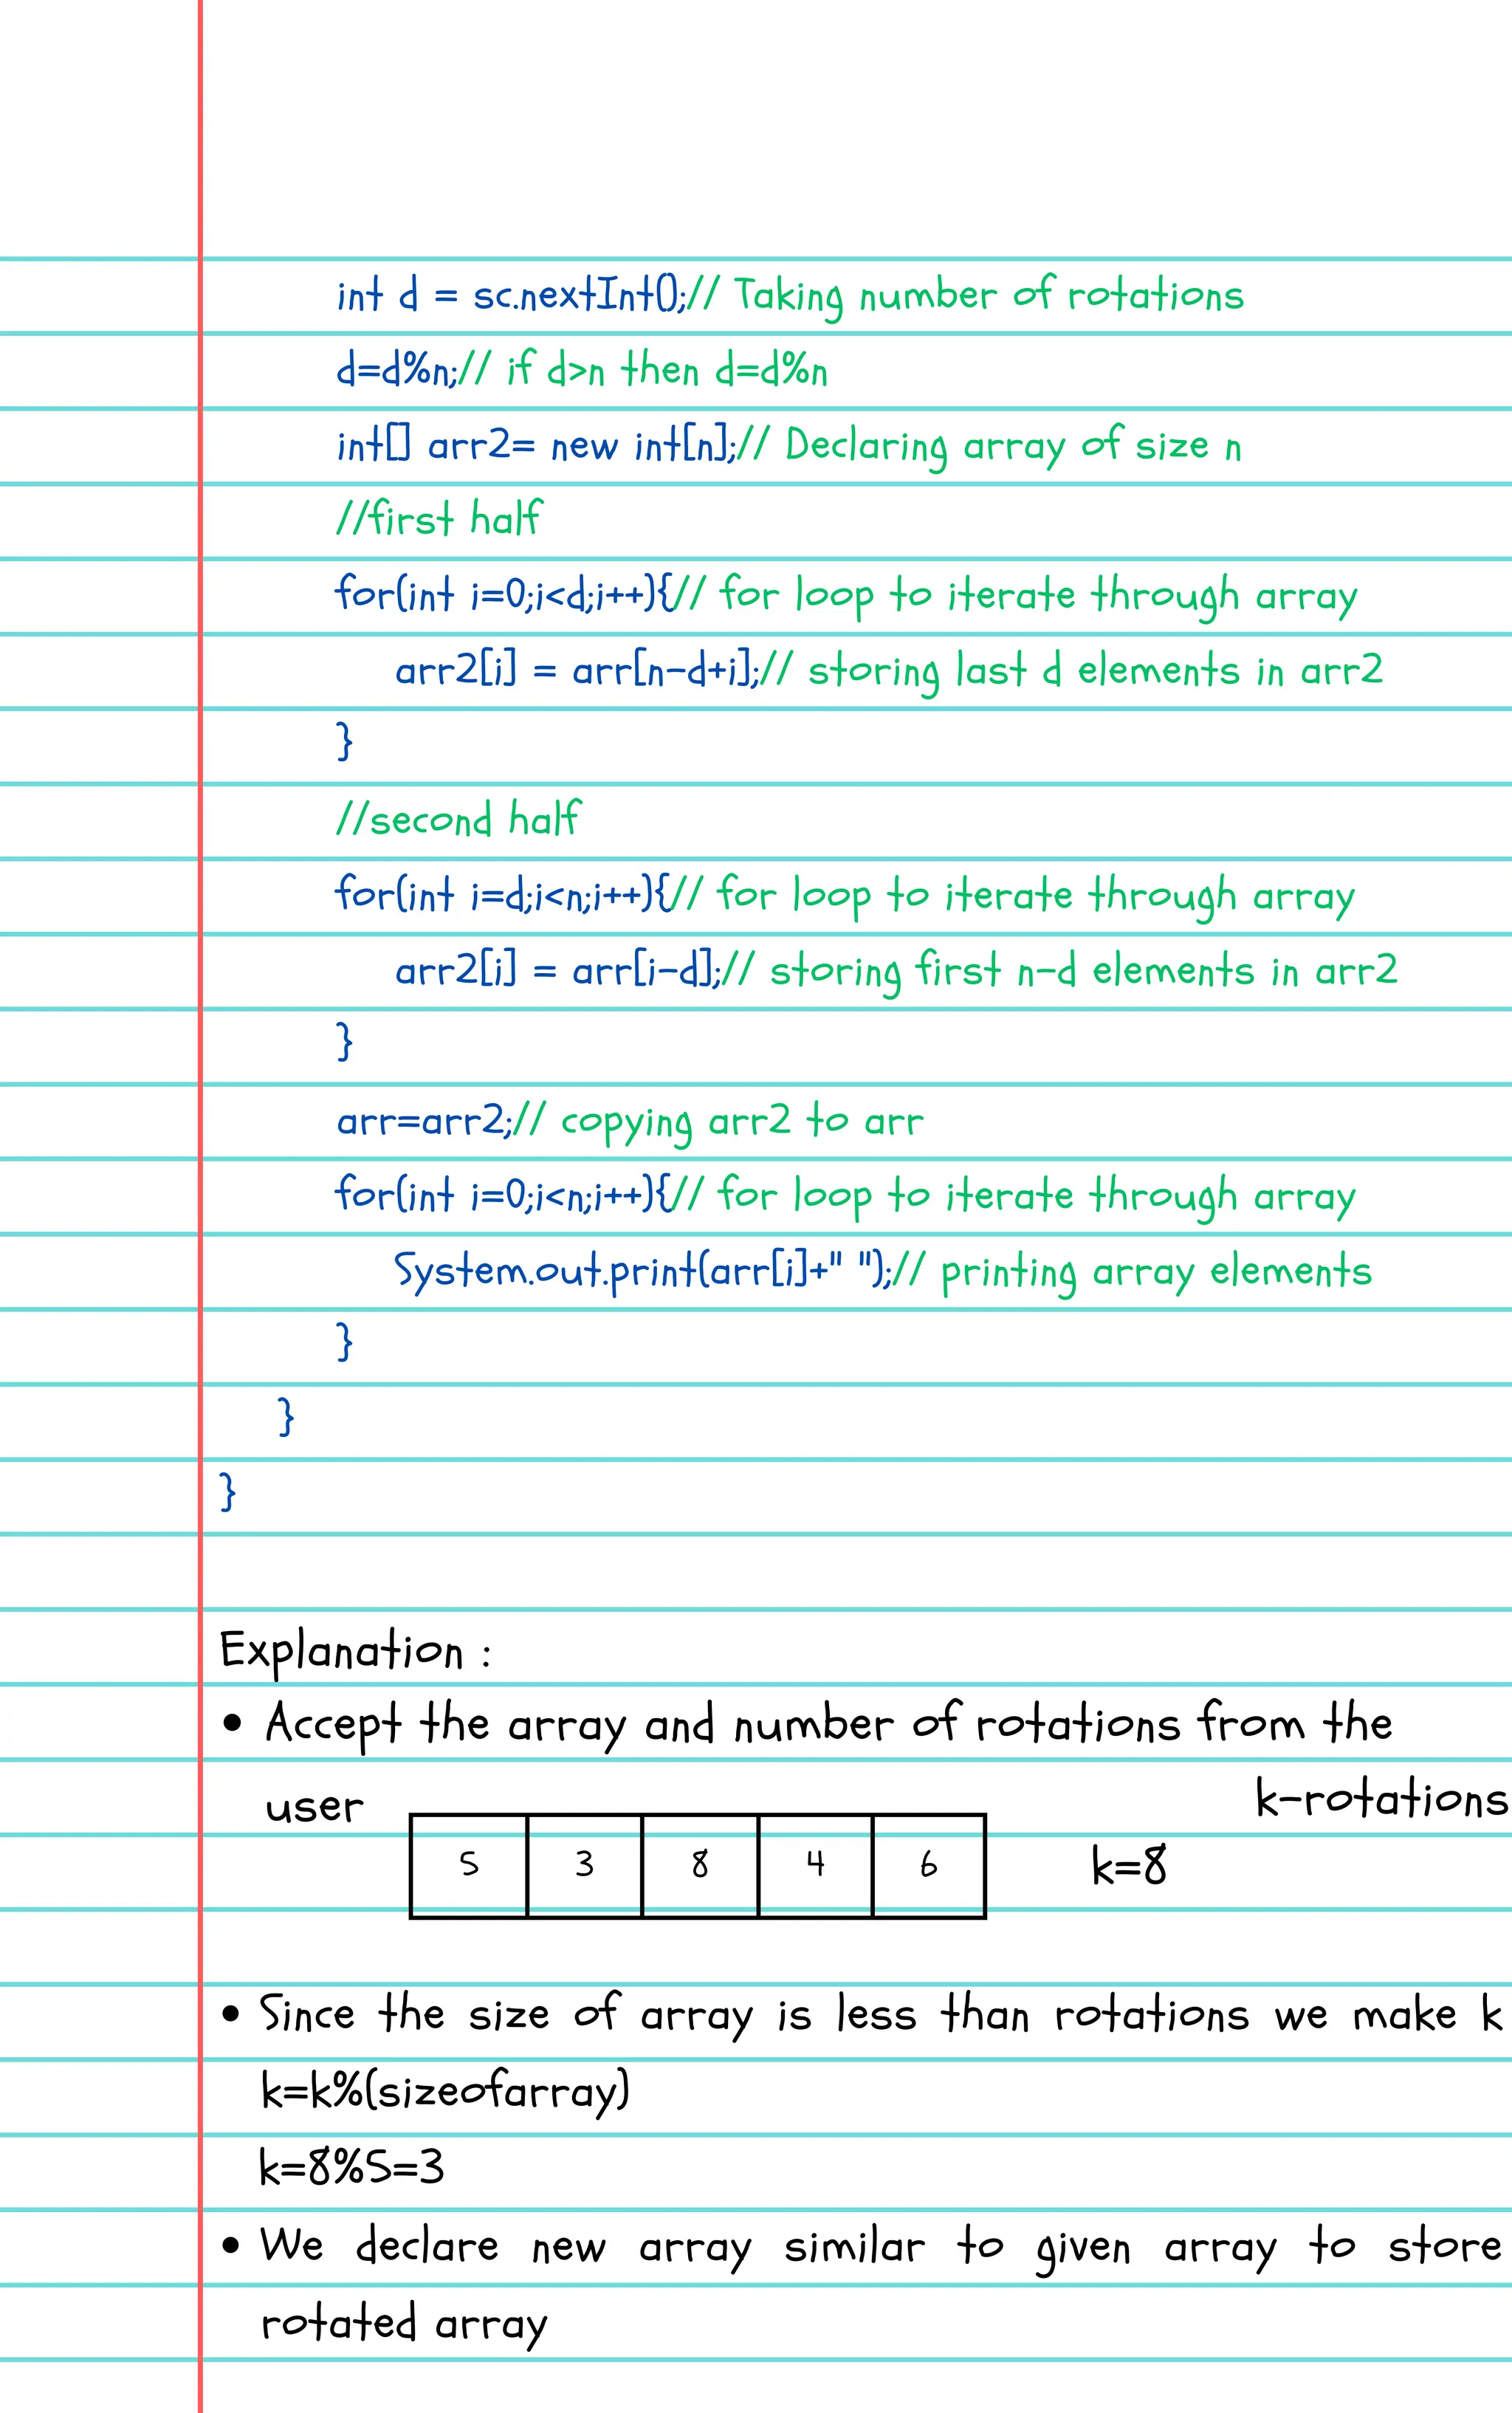 int d = sc.nextInt();// Taking number of rotations
d=d%n;// if d>n then d=d%n
int[] arr2= new int[n];// Declaring array of size n
//first half
for(int i=0;i<d;i++){// for loop to iterate through array
arr2[i] = arr[n-d+i];// storing last d elements in arr2
}
//second half
for(int i=d;i<n;i++){// for loop to iterate through array
arr2[i] = arr[i-d];// storing first n-d elements in arr2
}
arr=arr2;// copying arr2 to arr
for(int i=0;i<n;i++){// for loop to iterate through array
System.out.print(arr[i]+" ");// printing array elements
}
}
}
Explanation :
• Accept the array and number of rotations from the
user
k-rotations
5 3 8 4 6
k=8
• Since the size of array is less than rotations we make k
k=k%(sizeofarray)
k=8%5=3
• We declare new array similar to given array to store
rotated array